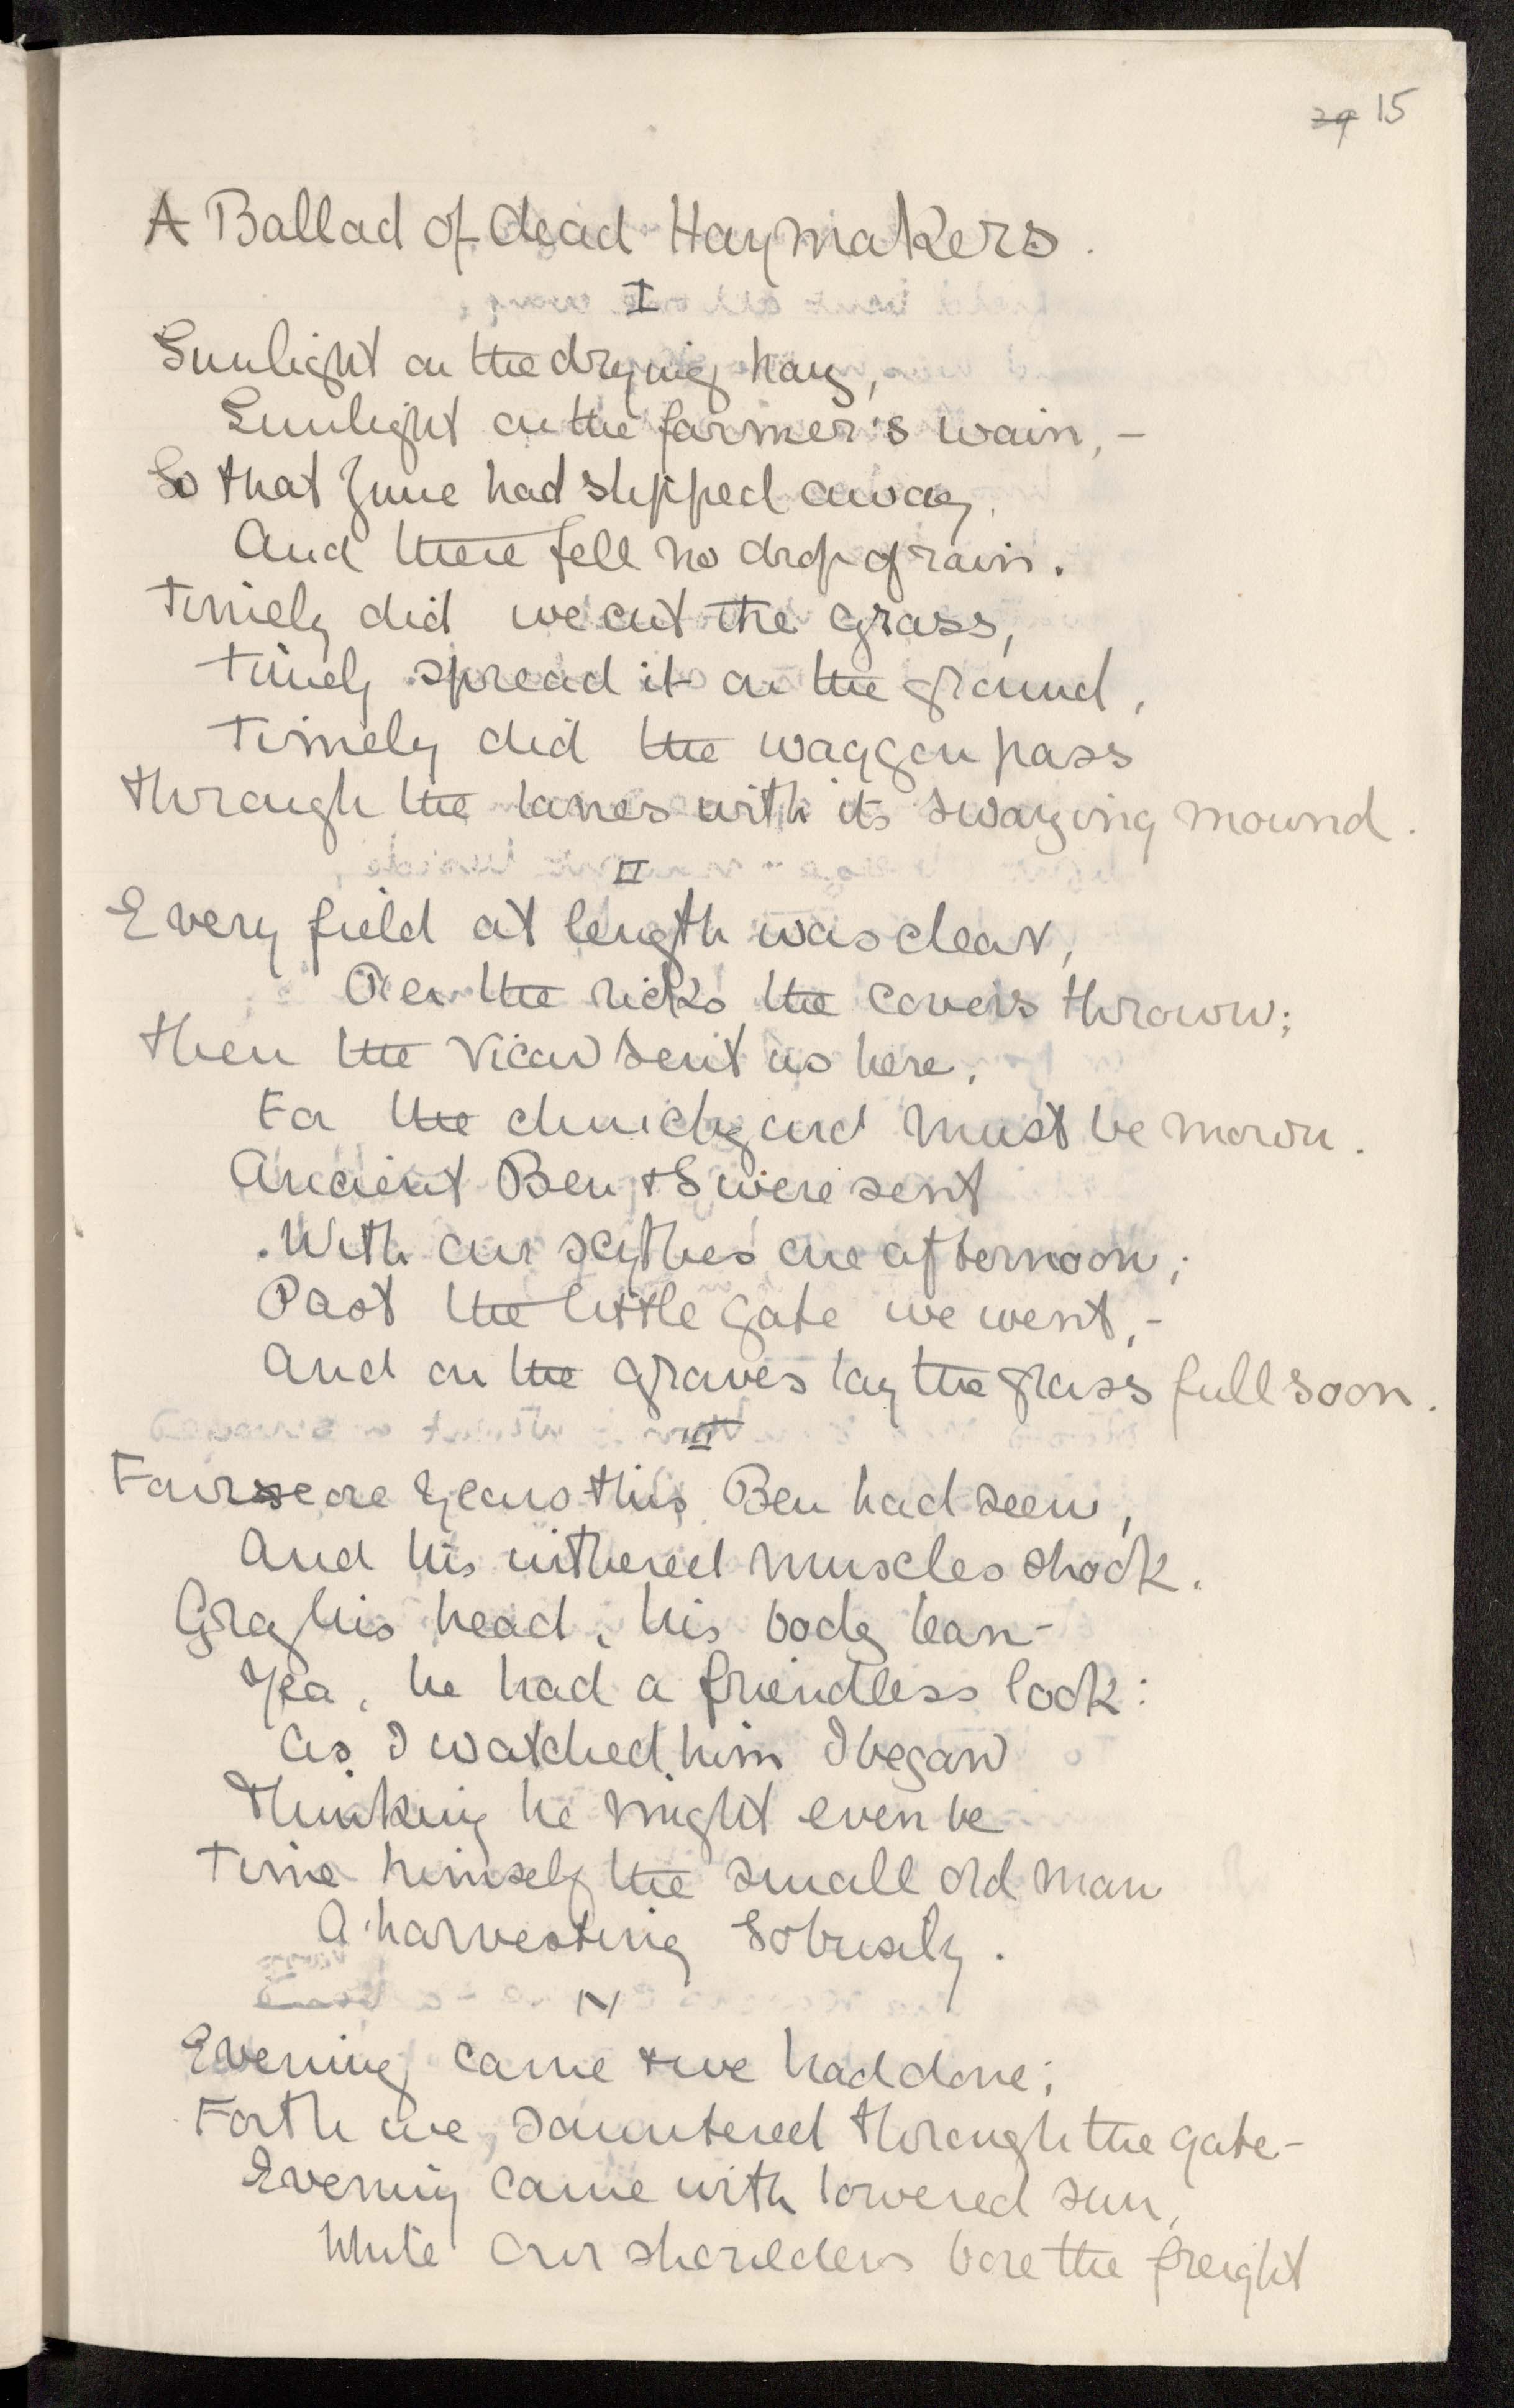 29 15
A Ballad of dead Haymakers.
I
Sunlight on the drying hay,
Sunlight on the farmer's wain, -
So that June had slipped away,
And there fell no drop of rain.
Timely did we cut the grass,
Timely spread it on the ground,
Timely did the waggon pass
Through the lanes with its swaying mound.
II
Every field at length was clear,
O'er the ricks the covers thrown;
Then the Vicar sent us here,
For the churchyard must be mown.
Ancient Ben & I were sent
With our scythes one afternoon;
Past the little gate we went, -
And on the graves lay the grass full soon.
III
Fourscore years this Ben had seen,
And his withered muscles shook.
Gray his head, his body lean -
Yea, he had a friendless look:
As I watched him I began
Thinking he might even be
Time himself the small old man
A-harvesting so busily.
IV
Evening came & we had done;
Forth we sauntered through the gate -
Evening came with lowered sun,
While our shoulders bore the freight